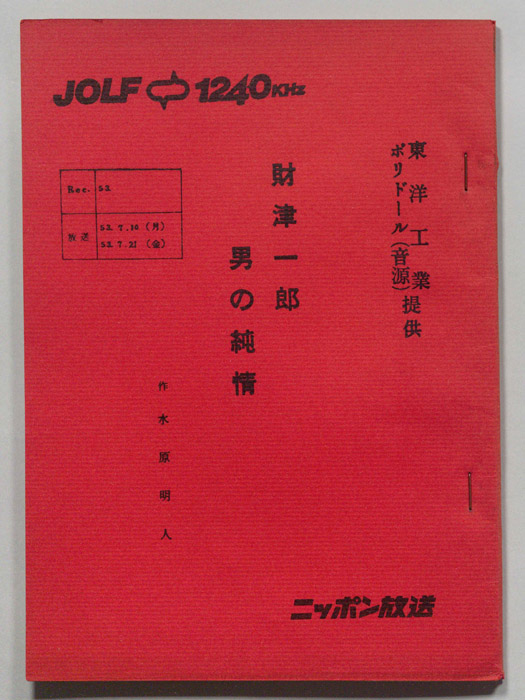 JOLF 1240KHz
東洋工業
ポリドール(音源)提供
財津一郎
男の純情
Rec. 52
放送 52.7.18(月)
52.7.21(金)
作 水原明人
ニッポン放送